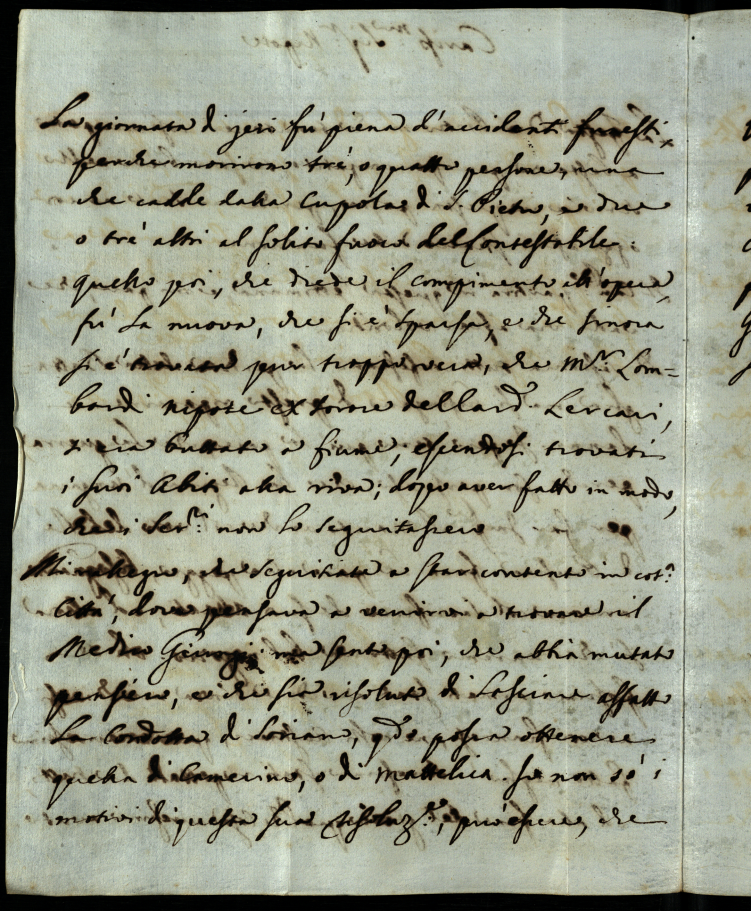 La giornata di jeri fu' piena d'accidenti funesti,
perche morirono tre', o quattro persone, una
che cadde dalla Cupola di S. Pietro, e due
o tre' altri al solito fuoco del Contestabile:
quello poi, che diede il compimento all'opera,
fu' la nuova, che si e' sparsa, e che sinora
si e' trovata pur troppo vera, che M.r Lom=
bardi nipote ex sorore del Card. Lercari,
si era buttato a fiume, essendosi trovati
i suoi Abiti alla riva; dopo aver fatto in modo,
che i Ser.ri non lo seguitassero
Mi rallegro, che seguitiate a star contento in cot.a
Città, dove pensava a venirvi a trovare il
Medico Giorgi ma sento poi, che abbia mutato
pensiero, e che sia risoluto di lasciare affatto
la Condotta di Soriano, q.do possa ottenere
quella di Camerino, o di Mattelica. Io non so' i
motivi di questa sua risoluz.e, può essere, che